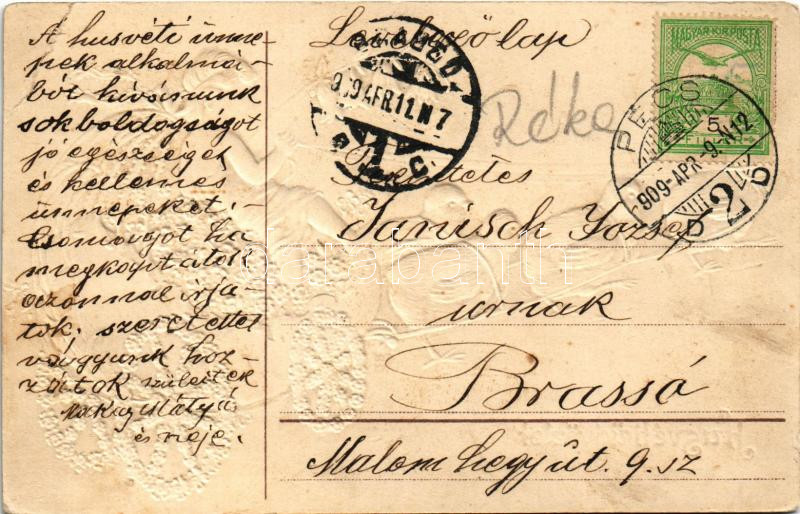 A husvéti ünne-
pek alkalmá-
ból kívácsunk
sok boldogságot
jó egészséget
és kellemes
ünnepeket.
Csomagot ha
megkaptátok
azonnal irja-
tok. szeretettel
vagyunk hoz-
zátok szüleitek
Mátyás
és neje.
Levelezőlap
Réka
MAGYAR KIR. POSTA
5
PÉCS
909-APR-9-N12
2
909 APR 11. N 7
Tekintetes
Janisch József
urnak
Brassó
Malomhegy út. 9. sz
darabanth